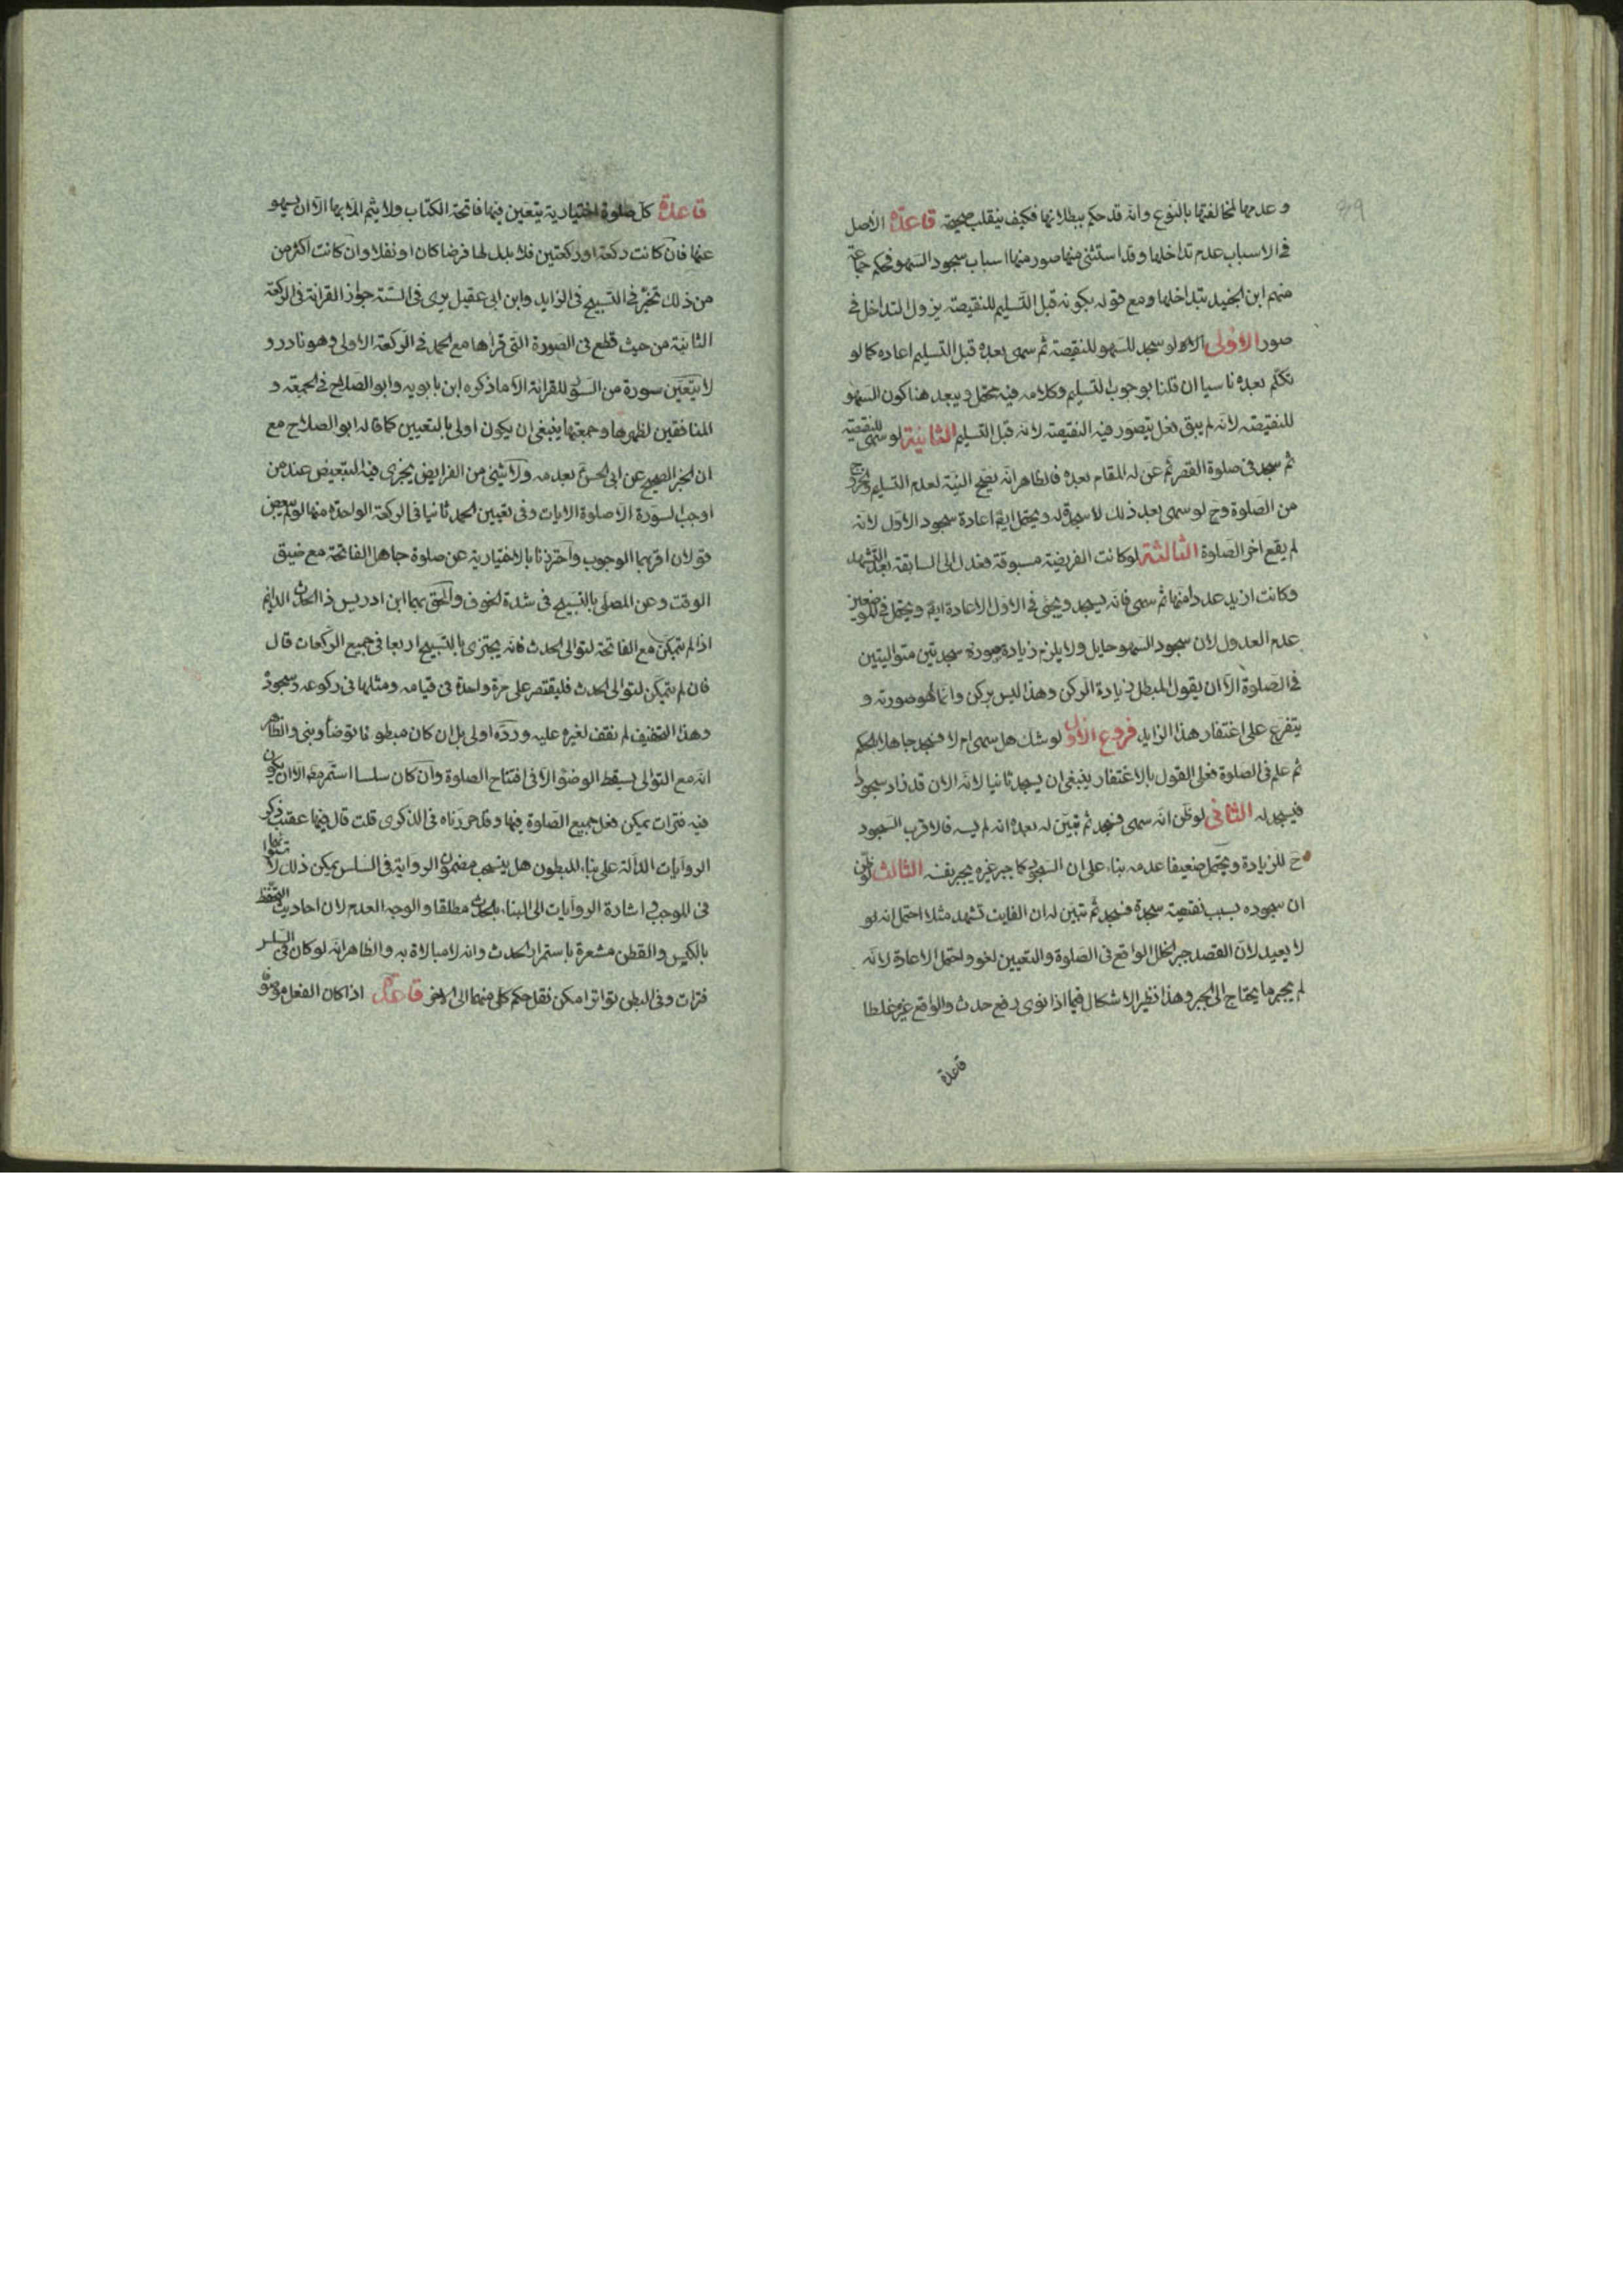 39
وعدمها لمخالفتها بالنوع وانه قد حكم ببطلانها فكيف ينقلب صحيحة قاعدة الاصل
في الاسباب عدم تداخلها وقد استثنى منها صور منها اسباب سجود السهو فحكم جماعة
منهم ابن الجنيد بتداخلها ومع قوله بكونه قبل التسليم للنقيصة يزول التداخل في
صور الاولى لو سجد للسهو للنقيصة ثم سهى بعده قبل التسليم اعاده كما لو
تكلم بعده ناسيا ان قلنا بوجوب التسليم وكلامه فيه محتمل ويبعد هنا كون السهو
للنقيصة لانه لم يبق فعل يتصور فيه النقيصة لانه قبل التسليم الثانية لو سهى للنقيصة
ثم سجد في صلوة القصر ثم عن له المقام بعده فالظاهر انه يصح النية لعدم التسليم والخروج
من الصلوة وح لو سهى بعد ذلك لا سجد له ويحتمل ايضا اعادة سجود الاول لانه
لم يقع اخر الصلوة الثالثة لو كانت الفريضة مسبوقة فعدل الى السابقة بعد التشهد
وكانت ازيد عددا منها ثم سهى فانه يسجد ويجئ في الاول الاعادة ايضا ويحتمل في الموضعين
عدم العدول لان سجود السهو حايل ولا يلزم زيادة صورة سجدتين متواليتين
في الصلوة الا ان يقول المبطل زيادة الركن وهذا ليس بركن وانما هو صورته و
يتفرع على اغتفار هذا الزايد فروع الاول لو شك هل سهى ام لا فسجد جاهلا بالحكم
ثم علم في الصلوة فعلى القول بالاغتفار ينبغي ان يسجد ثانيا لانه الان قد زاد سجودا
فيسجد له الثاني لو ظن انه سهى فسجد ثم تبين له بعده انه لم يسه فالاقرب السجود
ح للزيادة ويحتمل ضعيفا عدمه بناء على ان السجود كما جبر غيره يجبر نفسه الثالث لو ظن
ان سجوده بسبب نقيصة سجدة فسجد ثم تبين له ان الفايت تشهد مثلا احتمل انه لو
لا يعيد لان القصد جبر الخلل الواقع في الصلوة والتعيين لغو واحتمل الاعادة لانه
لم يجبر ما يحتاج الى الجبر وهذا نظير الاشكال فيما اذا نوى رفع حدث والواقع غيره غلطا
قاعدة
قاعدة كل صلوة اختيارية يتعين فيها فاتحة الكتاب ولا يتم الا بها الا ان يسهو
عنها فان كانت ركعة او ركعتين فلا بدل لها فرضا كان او نفلا وان كانت اكثر من
من ذلك تخير في التسبيح في الزايد وابن ابي عقيل يرى في السنة جواز القرائة في الركعة
الثانية من حيث قطع في الصورة التي قراها مع الحمد في الركعة الاولى وهو نادر و
لا يتعين سورة من السور للقرائة الا ما ذكره ابن بابويه وابو الصلاح في الجمعة و
المنافقين لظهرها وجمعتها ينبغي ان يكون اولى بالتعيين كما قاله ابو الصلاح مع
ان الخبر الصحيح عن ابي الحسن بعدمه ولا شئ من الفرايض يجزى فيه التبعيض عند من
اوجب السورة الا صلوة الايات وفي تعيين الحمد ثانيا في الركعة الواحدة منها لو تم بعض
قولان اقربهما الوجوب واحترزنا بالاختيارية عن صلوة جاهل الفاتحة مع ضيق
الوقت وعن المصلى بالتسبيح في شدة الخوف والحق بهما ابن ادريس ذا الحدث الدائم
اذا لم يتمكن مع الفاتحة لتوالى الحدث فانه يجتزى بالتسبيح اربعا في جميع الركعات قال
فان لم يتمكن لتوالى الحدث فليقتصر على مرة واحدة في قيامه ومثلها في ركوعه وسجوده
وهذا التخفيف لم نقف لغيره عليه ورده اولى بل ان كان مبطونا توضأ وبنى والظاهر
انه مع التوالى يسقط الوضوء الا في افتتاح الصلوة وان كان سلسا استمر مع الا ان يكون
فيه فترات يمكن فعل جميع الصلوة فيها وقد حررناه في الذكرى قلت قال فيها عقيب ذكر
الروايات الدالة على بناء المبطون هل ينسحب مضمون الرواية في السلس يمكن ذلك لا
في الموجب واشارة الروايات الى البناء بالحدث مطلقا والوجه العدم لان احاديث التحفظ
بالكيس والقطن مشعرة باستمرار الحدث وانه لا مبالاة به والظاهر انه لو كان في السلس
فترات وفي البطن تواتر امكن نقل حكم كل منهما الى الاخر قاعدة اذا كان الفعل موصوفا